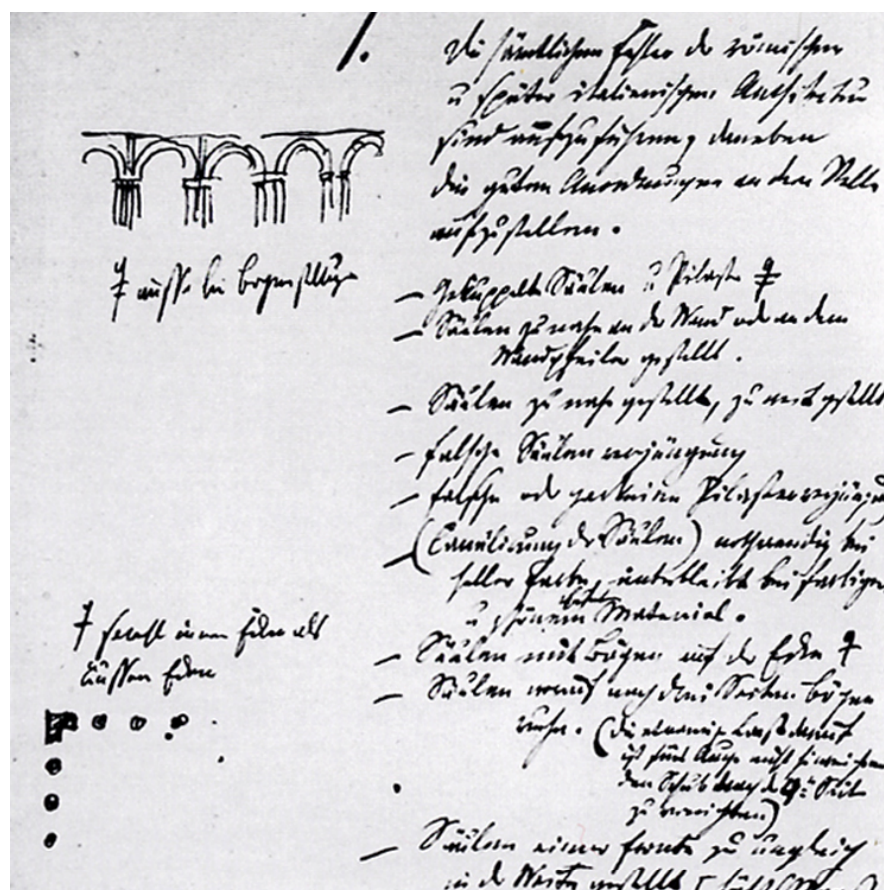 1.
Die sämtlichen Fehler der römischen
u später italienischen Architektur
sind aufzuführen, daneben
die guten Anordnungen an dem Stelle
aufzustellen.
‡ ausser bei Bogenstellung
– Gekuppelte Säulen u Pilaster ‡
– Säulen zu nahe an der Wand oder an dem
Wandpfeiler gestellt.
– Säulen zu nahe gestellt, zu weit gestellt
– falsche Säulenverjüngung
– falsche oder gar keine Pilasterverjüngung
– (Canelirung der Säulen) nothwendig bei
heller Farbe, unterbleibt bei farbigem
u schönem Material.
‡ sowohl innern Ecken als
äussern Ecken
– Säulen mit Bögen auf der Ecke ‡
– Säulen worauf nach drei Seiten Bögen
ruhn. (Die Last darauf
ist fürs Auge nicht hinreichend
den Schub nach der Seite
zu vernichten)
– Säulen einer Fronte zu ungleich
in der Weite gestellt